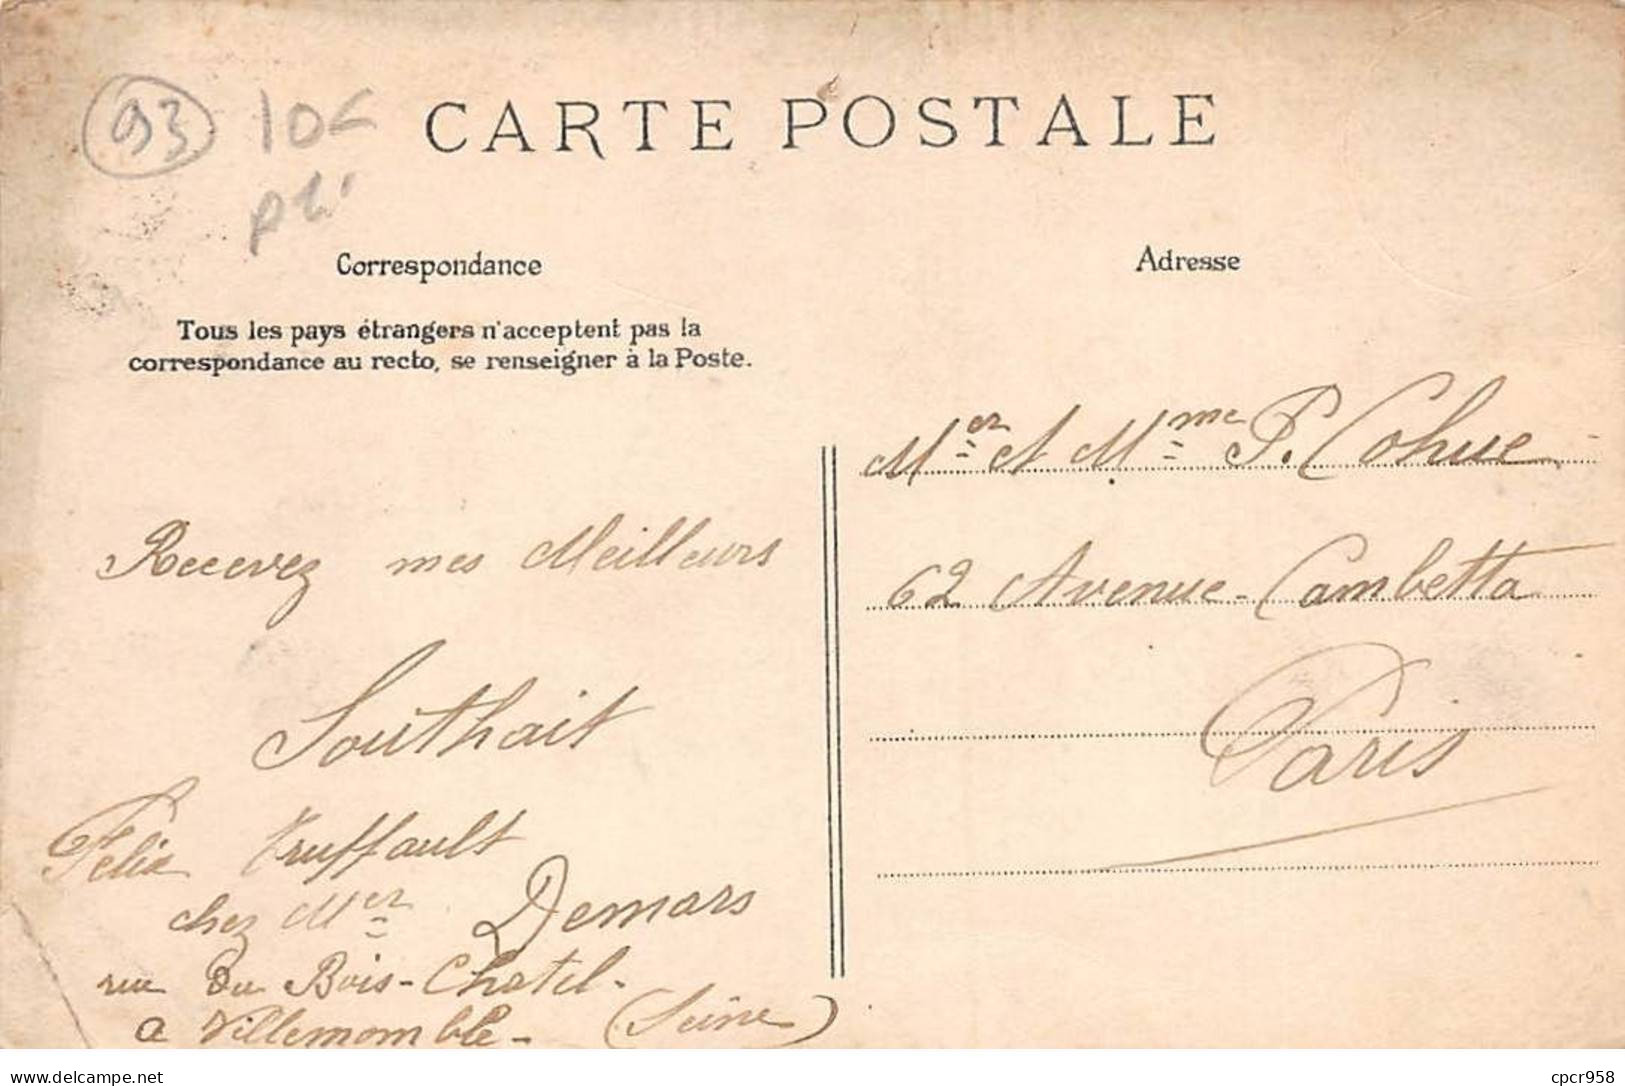 93 10€
pli
CARTE POSTALE
Correspondance
Tous les pays étrangers n'acceptent pas la
correspondance au recto, se renseigner à la Poste.
Recevez mes Meilleurs
Southait
Félix Truffault
chez Mer Demars
rue Du Bois-Chatel-
a Villemomble- (Seine)
Adresse
Mer et Mme P. Cohue
62 Avenue-Cambetta
Paris
cpcr958